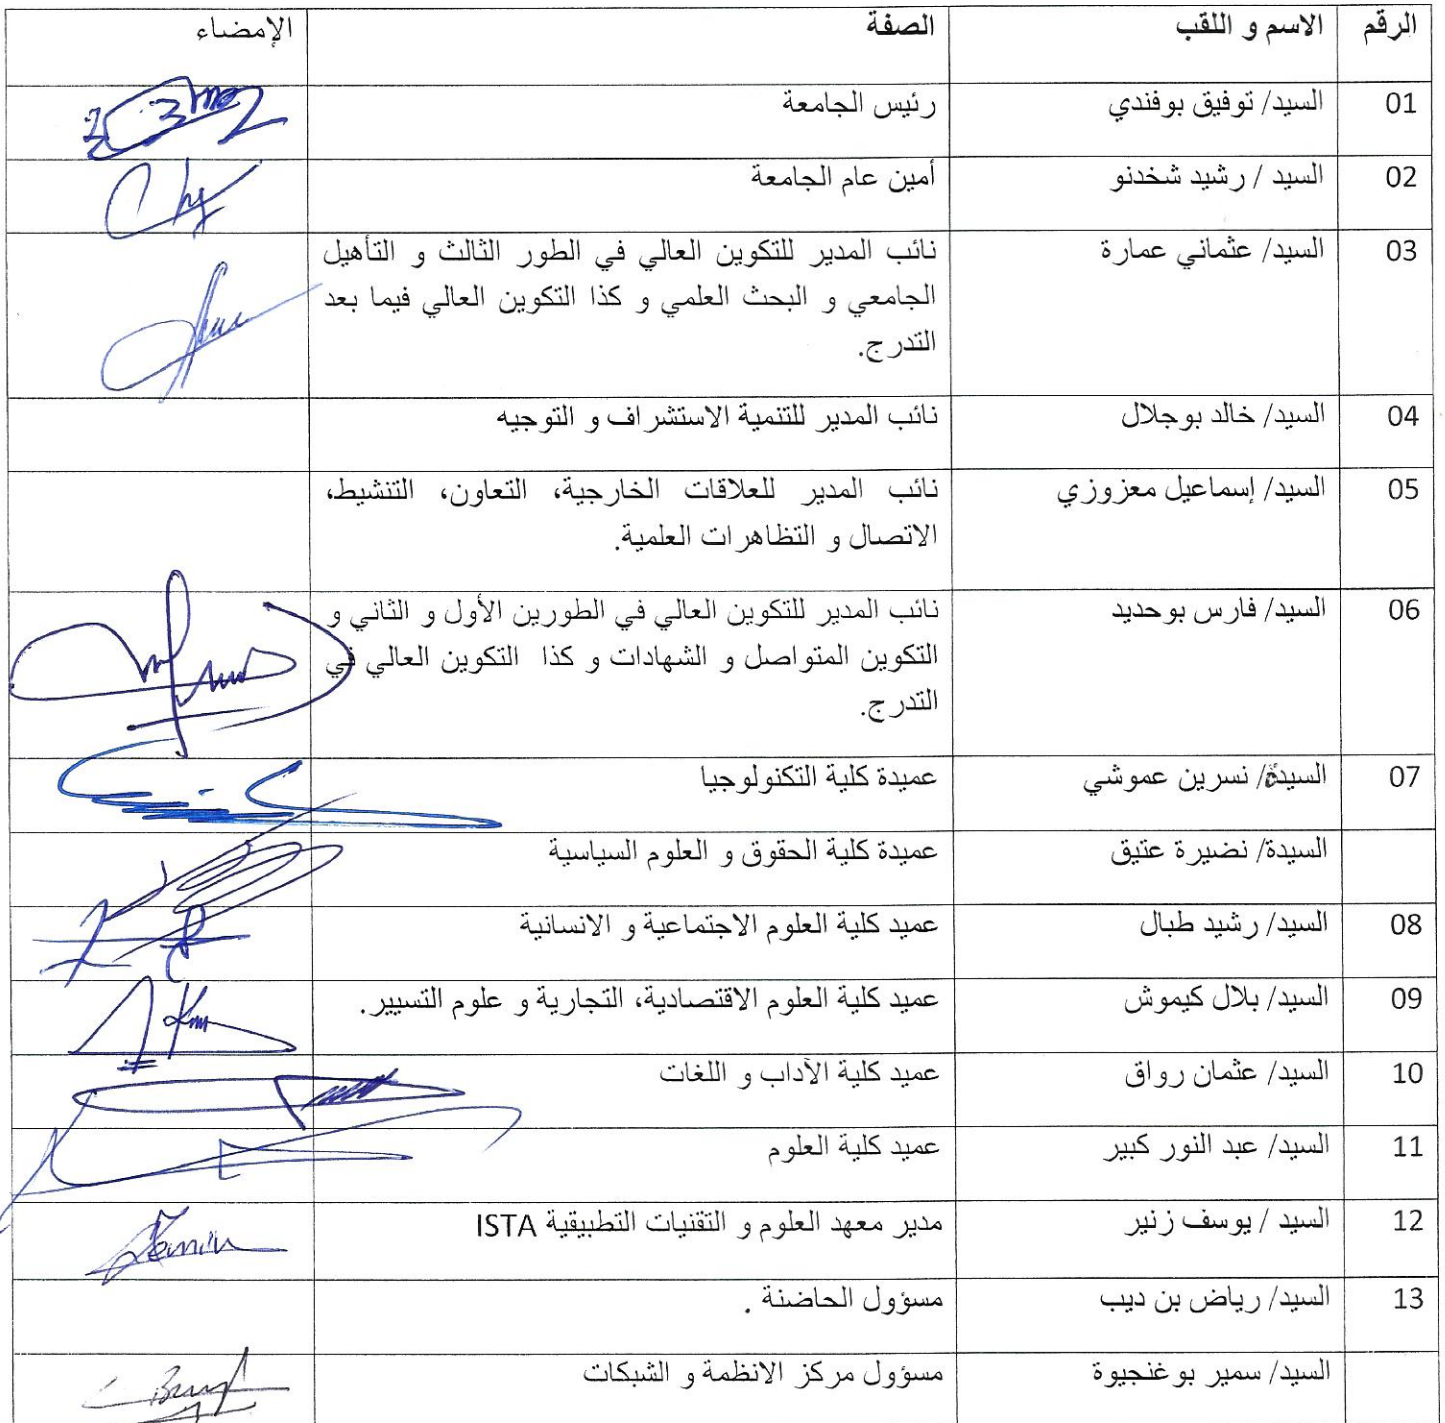 الرقم الاسم و اللقب الصفة الإمضاء
01 السيد/ توفيق بوفندي رئيس الجامعة
02 السيد / رشيد شخدنو أمين عام الجامعة
03 السيد/ عثماني عمارة نائب المدير للتكوين العالي في الطور الثالث و التأهيل
الجامعي و البحث العلمي و كذا التكوين العالي فيما بعد
التدرج.
04 السيد/ خالد بوجلال نائب المدير للتنمية الاستشراف و التوجيه
05 السيد/ إسماعيل معزوزي نائب المدير للعلاقات الخارجية، التعاون، التنشيط،
الاتصال و التظاهرات العلمية.
06 السيد/ فارس بوحديد نائب المدير للتكوين العالي في الطورين الأول و الثاني و
التكوين المتواصل و الشهادات و كذا التكوين العالي في
التدرج.
07 السيدة/ نسرين عموشي عميدة كلية التكنولوجيا
السيدة/ نضيرة عتيق عميدة كلية الحقوق و العلوم السياسية
08 السيد/ رشيد طبال عميد كلية العلوم الاجتماعية و الانسانية
09 السيد/ بلال كيموش عميد كلية العلوم الاقتصادية، التجارية و علوم التسيير.
10 السيد/ عثمان رواق عميد كلية الأداب و اللغات
11 السيد/ عبد النور كبير عميد كلية العلوم
12 السيد / يوسف زنير مدير معهد العلوم و التقنيات التطبيقية ISTA
13 السيد/ رياض بن ديب مسؤول الحاضنة .
السيد/ سمير بوغنجيوة مسؤول مركز الانظمة و الشبكات